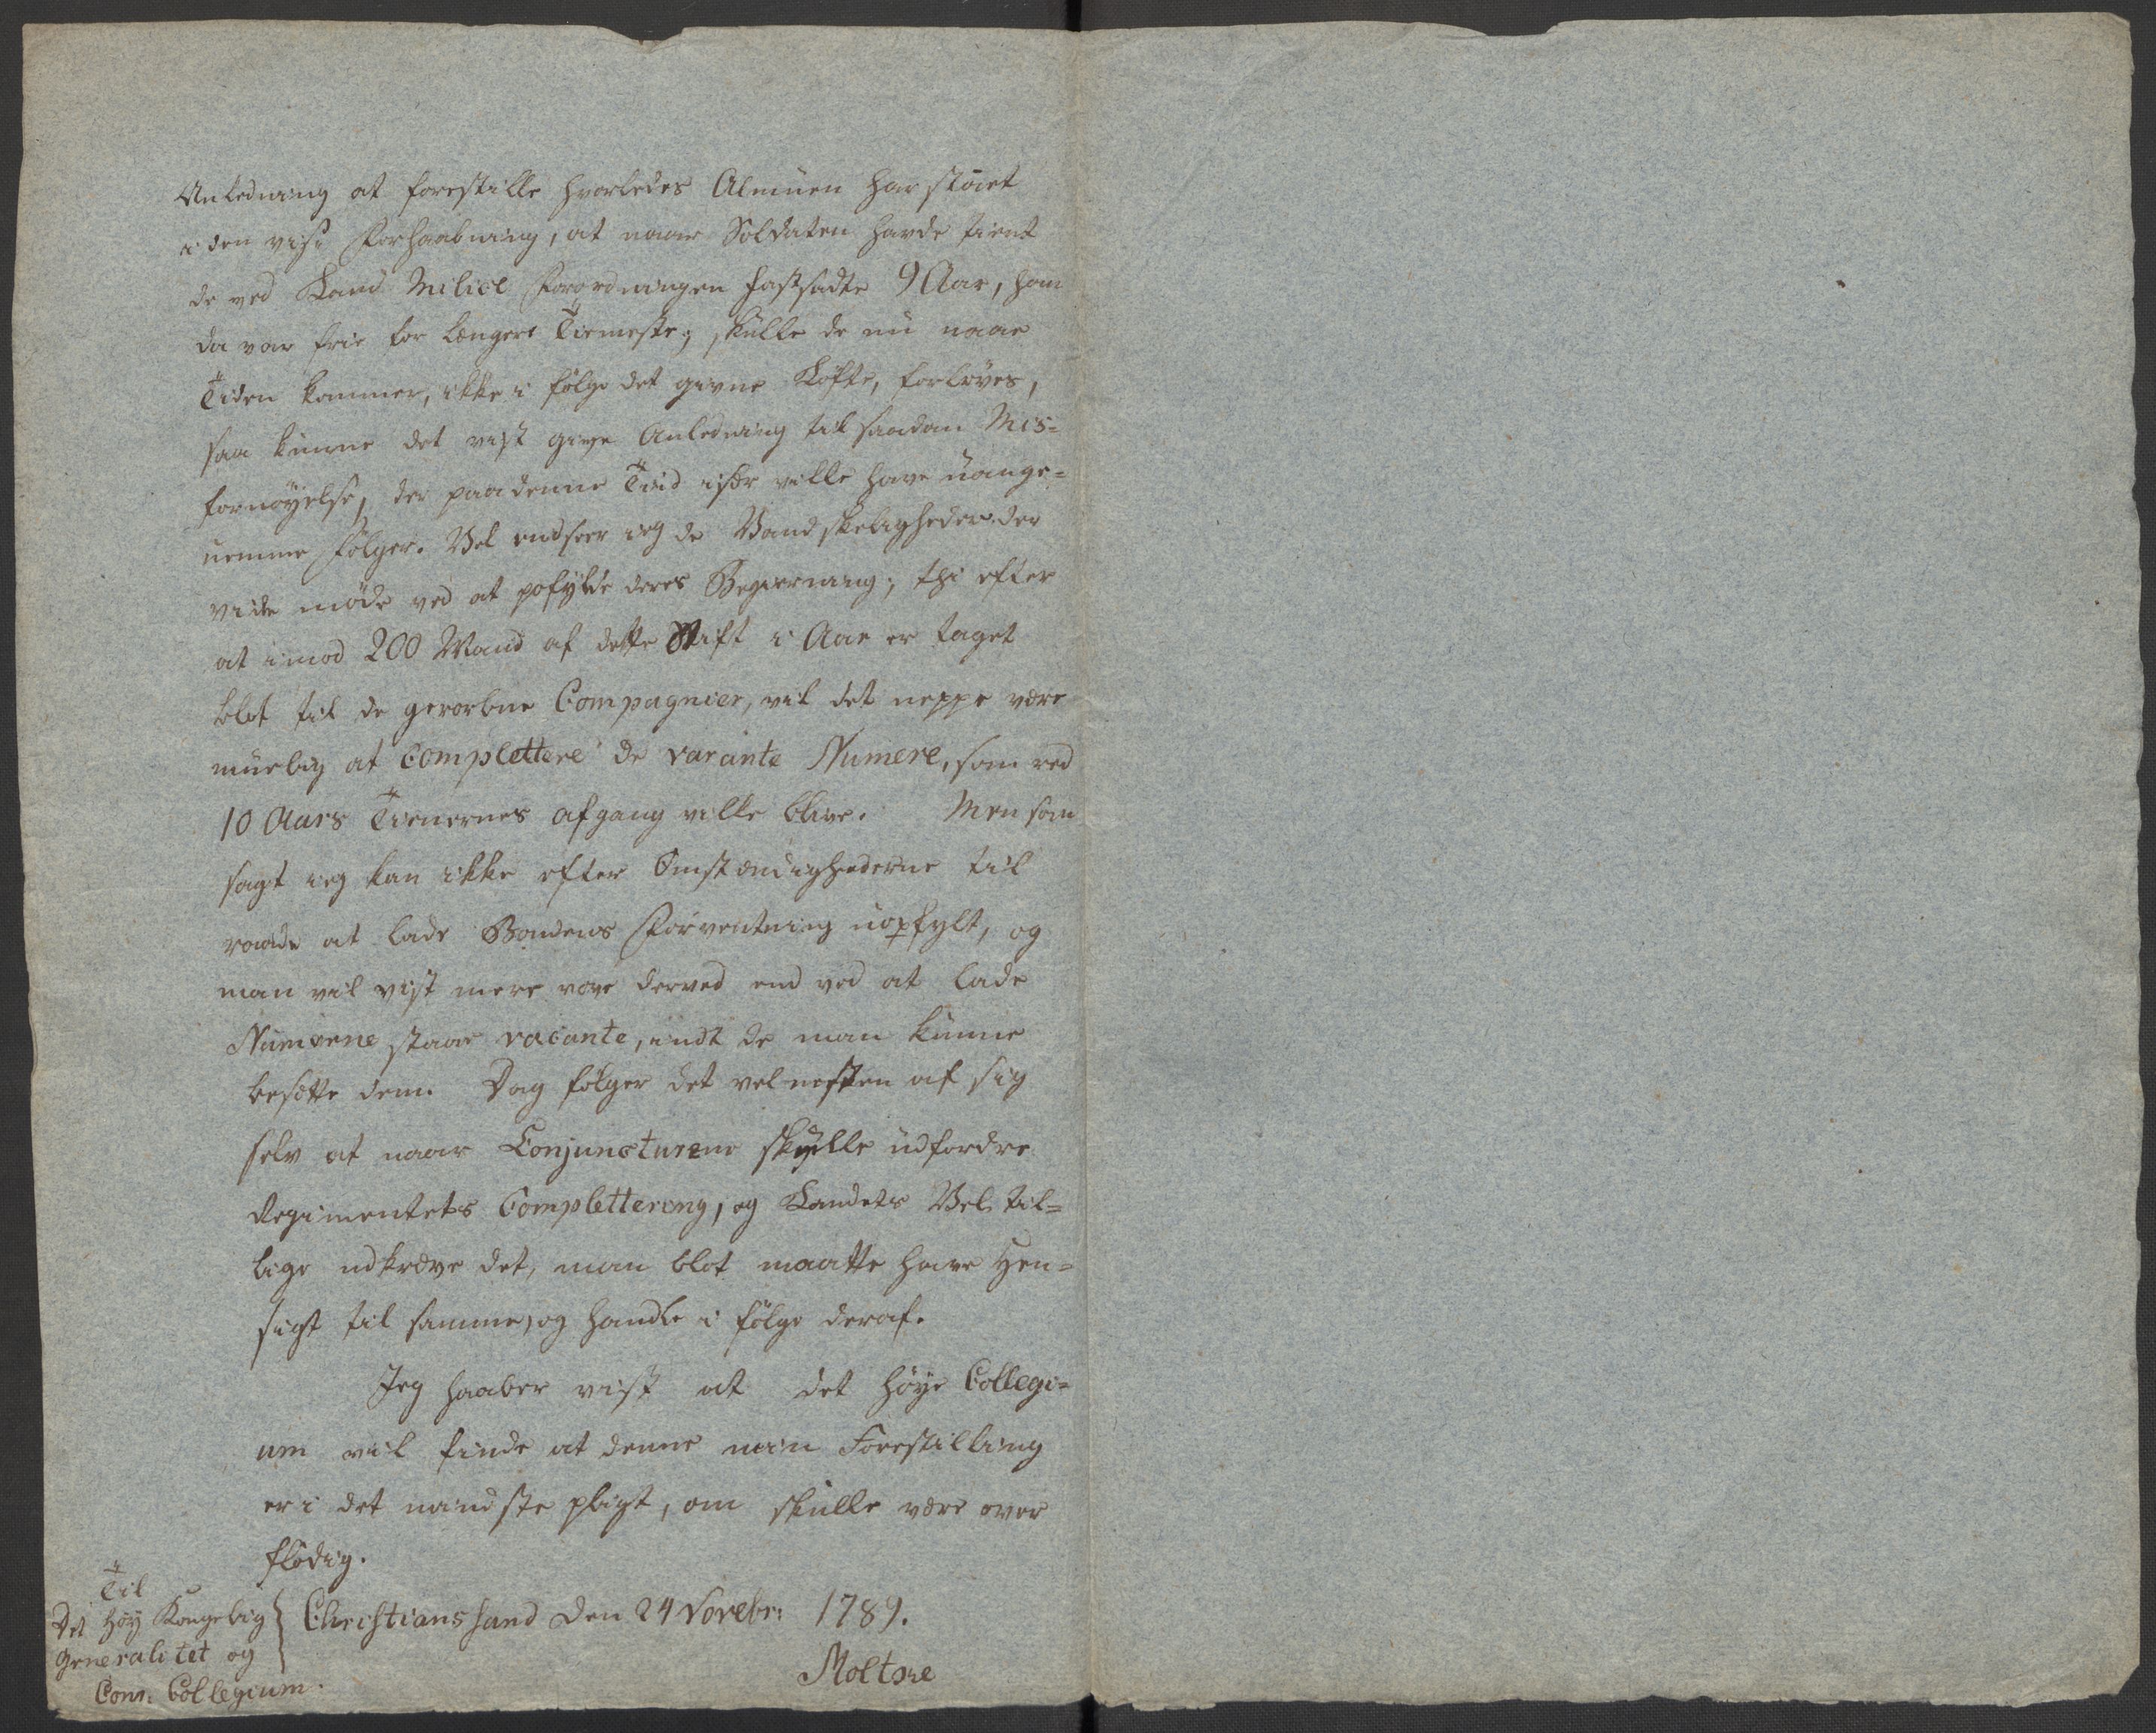 Anledning at forestille hvorledes Almuen har stået
i den visse Forhaabning, at naar Soldaten havde tient
de ved Land Milice Forordningen fastsadte 9 Aar, han
da var frie for længere Tieneste; skulle de nu naar
Tiden kommer, ikke i følge det givne Løfte, forløves,
saa kunne det vist give Anledning til saadan Mis-
fornøyelse, der paa denne Tiid især ville have uange-
nemme Følger. Vel indseer ieg de Vandskeligheder der
ville møde ved at pofylde deres Begierning; thi efter
at imod 200 Mand af dette Stift i Aar er taget
blot til de gevorbne Compagnier, vil det neppe være
muelig at Complettere de vacante Numere, som ved
10 Aars Tienernes afgang ville blive. Men som
sagt ieg kan ikke efter Omstændighederne til
raade at lade Bondens Forventning uopfylt, og
man vil vist mere vove derved end ved at lade
Numerne staae vacante, indt de man kunne
besætte dem. Dog følger det vel nesten af sig
selv at naar Conjuncturene skulle udfordre
Regimentets Complettering, og Landets Vel til-
lige udkræve det, man blot maatte have Hen-
sigt til samme, og handle i følge deraf.
Jeg haaber vist at det høye Collegi-
um vil finde at denne min Forestilling
er i det mindste pligt, om skulle være over
flødig.
Til
Det Høy Kongelig
Generalitet og
Com: Collegium.
Christianssand den 24 Novebr: 1789.
Moltke